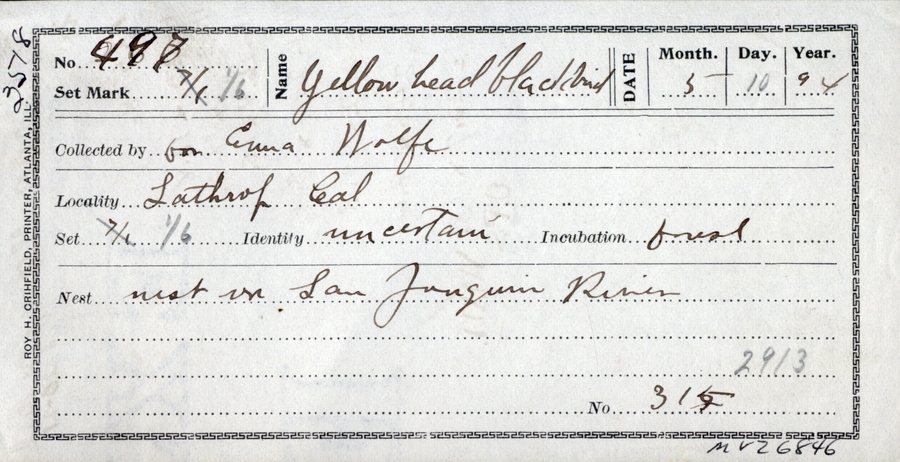 23578
ROY H. CRIHFIELD, PRINTER, ATLANTA, ILL.
No 497
Set Mark 7/1 1/6
Name Yellow head blackbird
DATE Month. 5 Day. 10 Year. 94
Collected by for Emma Wolfe
Locality Lathrop Cal
Set 7/1 1/6 Identity uncertain Incubation
Nest nest on San Joaquin River
2913
No 315
MVZ6846